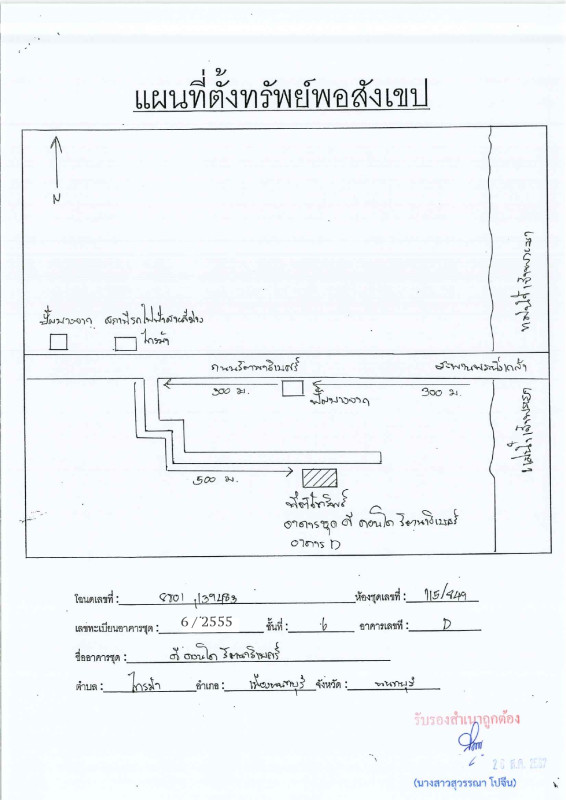 แผนที่ตั้งทรัพย์พอสังเขป
N
แม่น้ำเจ้าพระยา
ปั๊มบางจาก สถานีรถไฟฟ้าสายสีม่วง
ไทรม้า
ถนนรัตนาธิเบศร์ สะพานพระนั่งเกล้า
300 ม. 300 ม.
ปั๊มบางจาก
แม่น้ำเจ้าพระยา
500 ม.
ที่ตั้งทรัพย์
อาคารชุด ดี คอนโด รัตนาธิเบศร์
อาคาร D
โฉนดเลขที่ : ห้องชุดเลขที่ : 115/449
เลขทะเบียนอาคารชุด : 6/2555 ชั้นที่ : 6 อาคารเลขที่ : D
ชื่ออาคารชุด : ดี คอนโด รัตนาธิเบศร์
ตำบล : ไทรม้า อำเภอ : เมืองนนทบุรี จังหวัด : นนทบุรี
รับรองสำเนาถูกต้อง
(นางสาวสุวรรณา โปจีน)